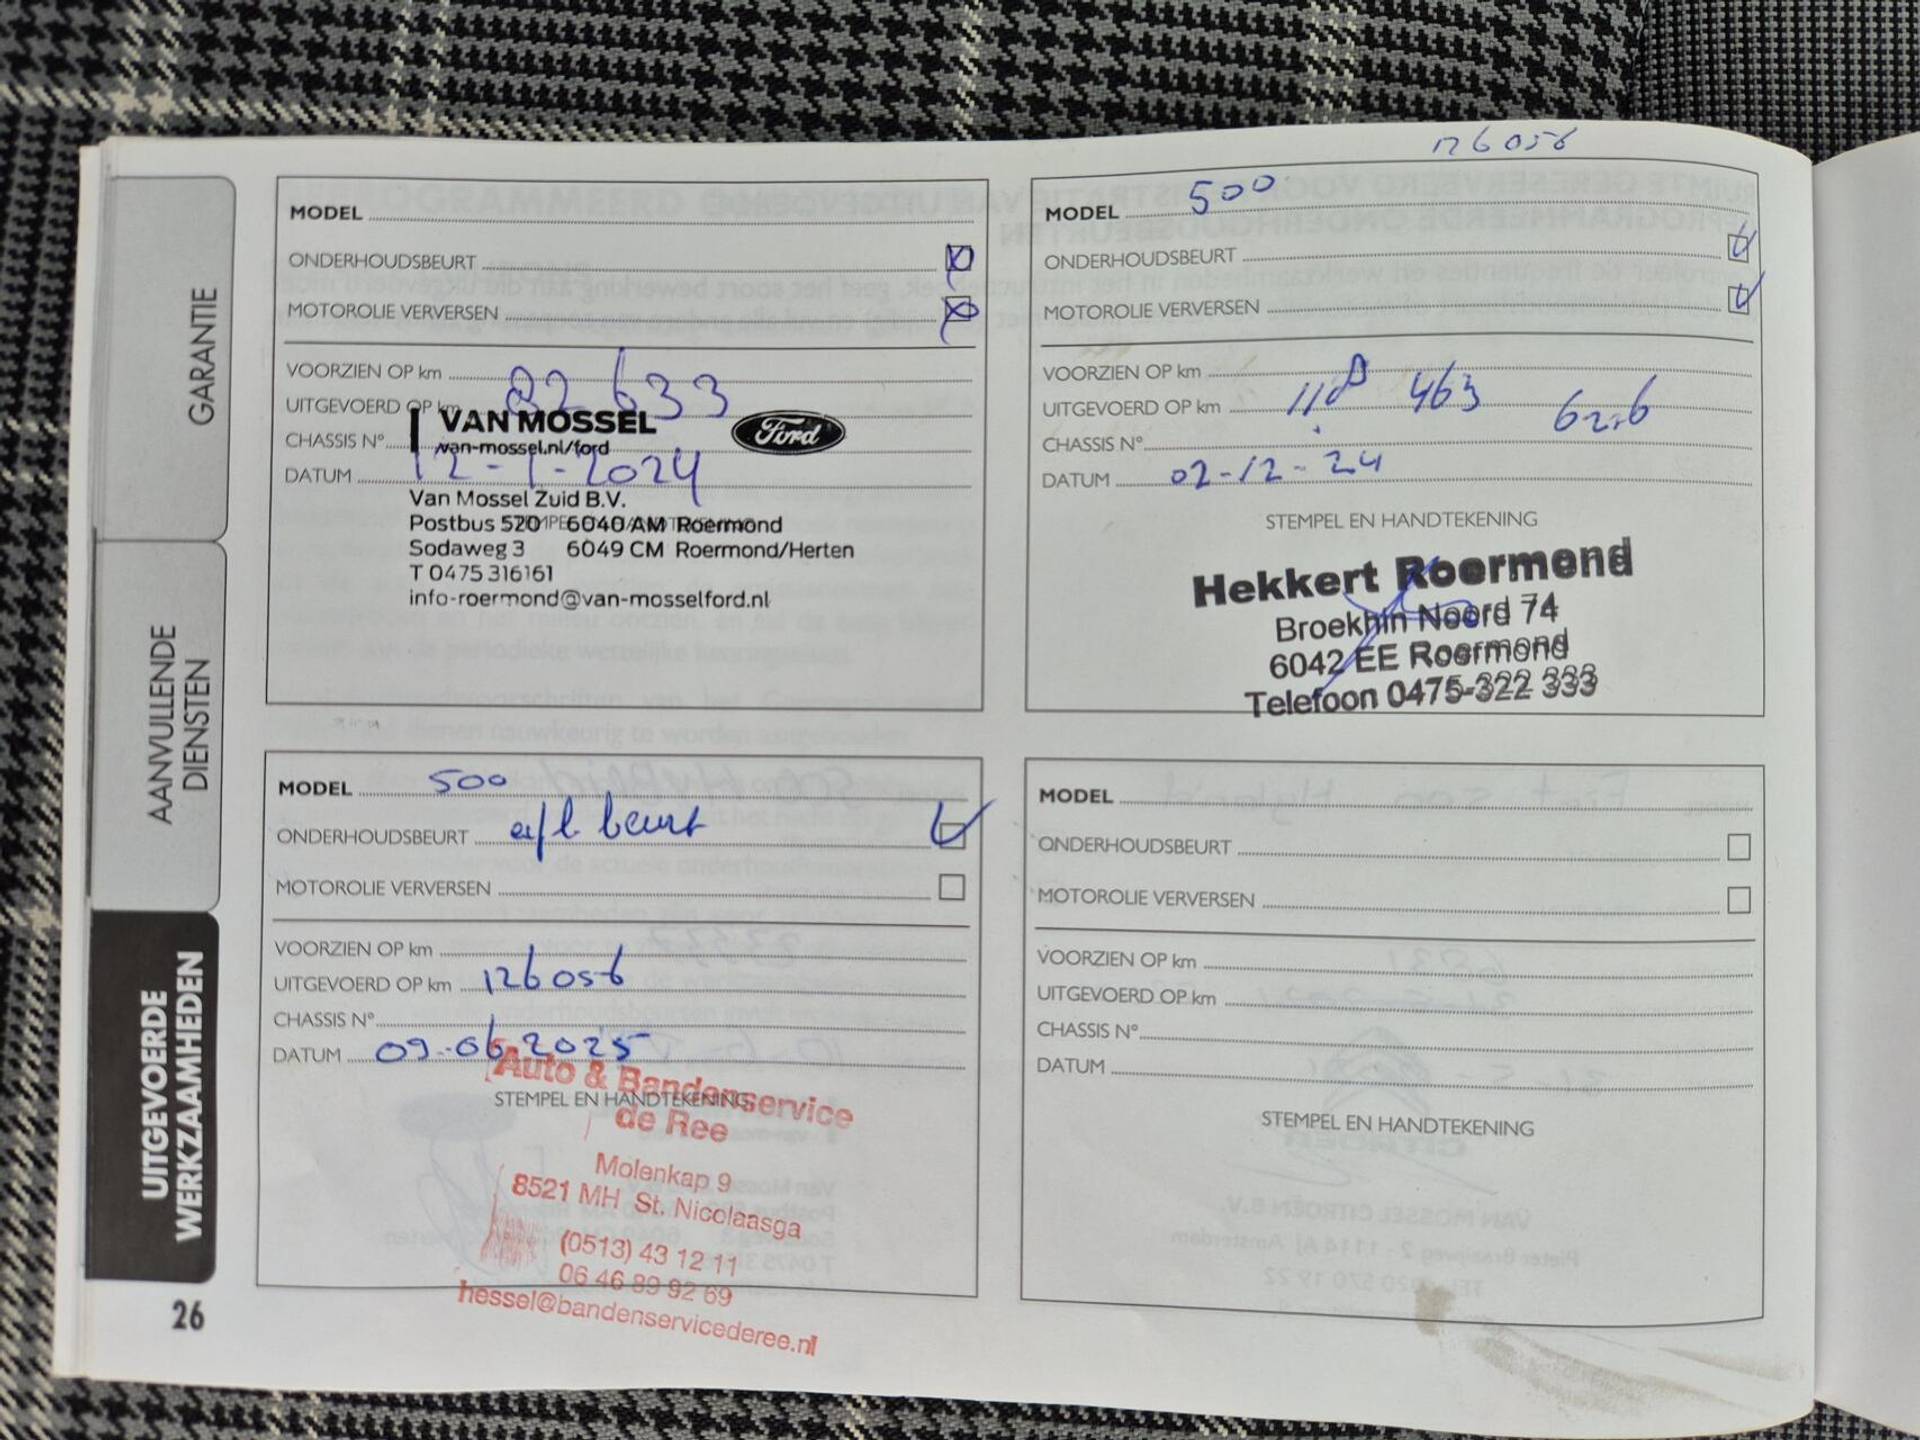 126056
GARANTIE
AANVULLENDE
DIENSTEN
UITGEVOERDE
WERKZAAMHEDEN
26
MODEL
ONDERHOUDSBEURT
MOTOROLIE VERVERSEN
VOORZIEN OP km
UITGEVOERD OP km 82 633
CHASSIS N°
DATUM 12-1-2024
VAN MOSSEL Ford
van-mossel.nl/ford
Van Mossel Zuid B.V.
Postbus 520 6040 AM Roermond
Sodaweg 3 6049 CM Roermond/Herten
T 0475 316161
info-roermond@van-mosselford.nl
MODEL 500
ONDERHOUDSBEURT
MOTOROLIE VERVERSEN
VOORZIEN OP km
UITGEVOERD OP km 463
CHASSIS N°
DATUM 02-12-24
STEMPEL EN HANDTEKENING
Hekkert Roermond
Broekhin Noord 74
6042 EE Roermond
Telefoon 0475-322 333
MODEL 500
ONDERHOUDSBEURT beurt
MOTOROLIE VERVERSEN
VOORZIEN OP km
UITGEVOERD OP km 126056
CHASSIS N°
DATUM 09-06-2025
STEMPEL EN HANDTEKENING
Auto & Bandenservice
de Ree
Molenkap 9
8521 MH St. Nicolaasga
(0513) 43 12 11
06 46 89 92 69
hessel@bandenservicederee.nl
MODEL
ONDERHOUDSBEURT
MOTOROLIE VERVERSEN
VOORZIEN OP km
UITGEVOERD OP km
CHASSIS N°
DATUM
STEMPEL EN HANDTEKENING